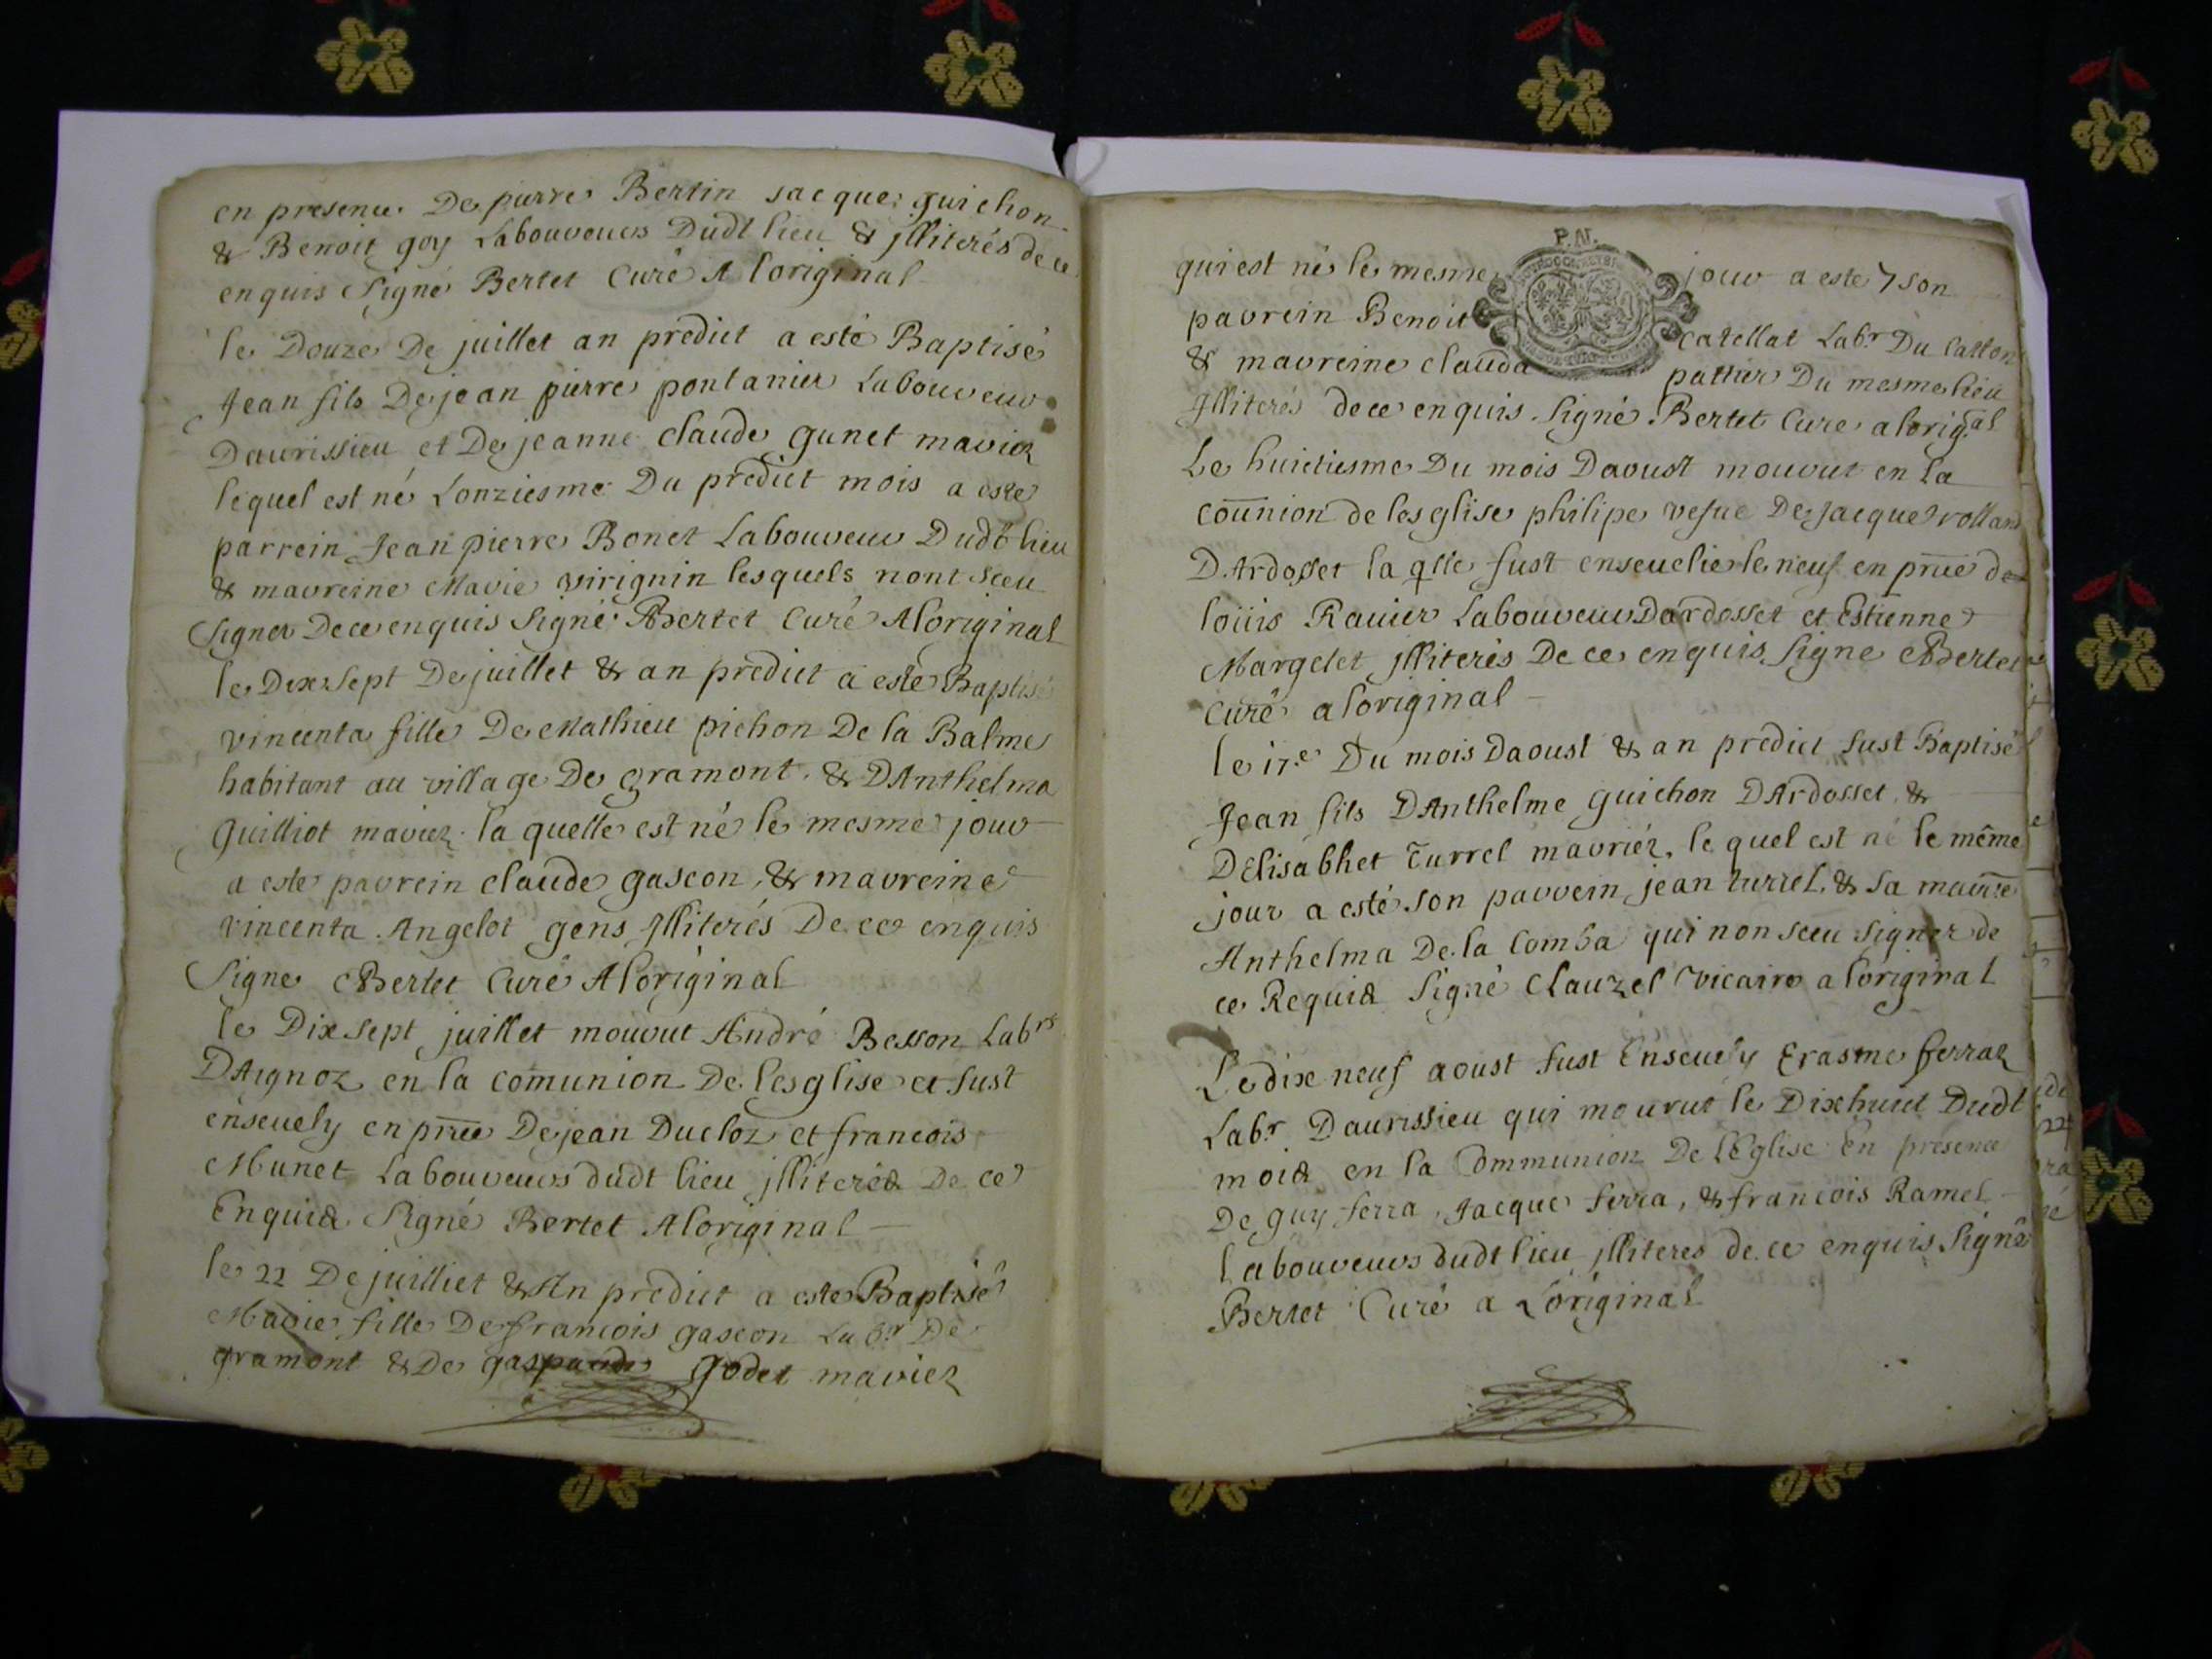 en presence De pierre Bertin jacque guichon
& Benoit goy Laboureurs Dudt lieu & jlliterés de ce
enquis Signé Bertet Curé A loriginal
le Douze De juillet an predict a esté Baptisé
Jean fils De jean pierre pontanier Laboureur
Daurissieu et De jeanne claude gunet mariez
lequel est né Lonziesme Du predict mois a esté
parrein Jean pierre Bonet Laboureur Dudt lieu
& marreine Marie virignin lesquels nont sceu
Signer De ce enquis Signé Bertet Curé A loriginal
le Dix sept De juillet & an predict a esté Baptisé
vincenta fille De Mathieu pichon De la Balme
habitant au village De gramont & DAnthelma
Guilliot mariez la quelle est né le mesme jour
a esté parrein claude gascon, & marreine
vincenta Angelot gens Jlliterés De ce enquis
Signe Bertet Curé A loriginal
le Dix sept juillet mourut André Besson Labrs
DAignoz en la comunion De lesglise et fust
enseuely en pnce De jean Ducloz et francois
Munet Laboureurs dudt lieu jlliterés De ce
Enquis Signé Bertet A loriginal
le 22 De juilliet & An predict a esté Baptisé
Marie fille De francois gascon Labr De
gramont & De gasparde godet mariez
P. N.
qui est né le mesme jour a esté son
parrein Benoit catellat Labr Du latton
& marreine clauda pattier Du mesme lieu
Jlliterés de ce enquis Signé Bertet Cure a lorigal
Le huictiesme Du mois Daoust mourut en La
counion de lesglise philipe vefue De Jacque rolland
DArdosset la qlle fust enseuelie le neuf en pnce de
loüis Rauier Laboureur Dardosset et Estienne
Margelet jlliterés De ce enquis Signe Bertet
Curé a loriginal
le 17e Du mois Daoust & an predict fust Baptisé
Jean fils DAnthelme guichon DArdosset &
DElisabhet Turrel mariéz, le quel est né le même
jour a esté son parrein jean turrel & sa marne
Anthelma De la Comba qui non sceu signer de
ce Requis Signé Clauzel Vicaire a loriginal
Le dix neuf aoust fust Enseuely Erasme ferraz
Labr Daurissieu qui mourut le Dixhuict Dudt
mois en la Communion De LEglise En présence
De guy ferra, Jacque ferra, & francois Ramel
laboureurs dudt lieu jlliteres de ce enquis Signé
Bertet Curé a Loriginal